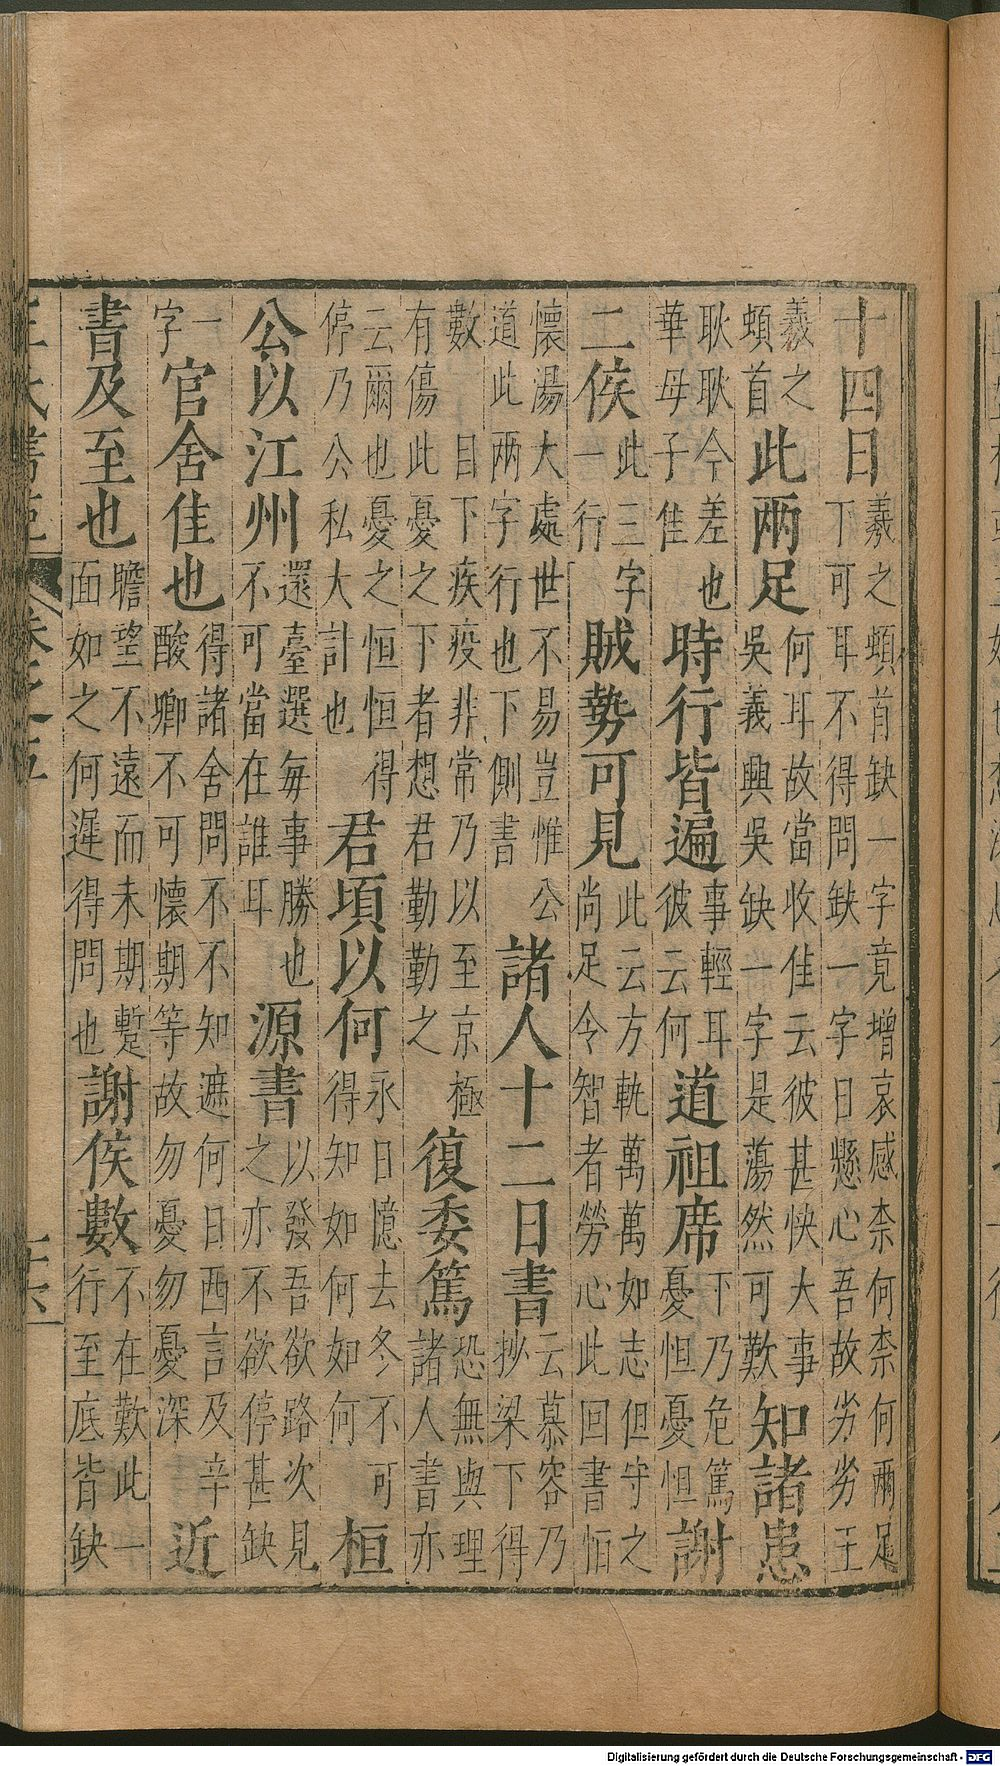 十四日羲之頓首缺一字竟增哀感柰何柰何兩足下可耳不得問缺一字日懸心吾故劣劣王
羲之頓首此兩足何耳故當收佳云彼甚快大事吳義興吳缺一字是蕩然可歎知諸患
耿耿今差也華母子佳時行皆遍事輕耳彼云何道祖席下乃危篤憂怛憂怛謝
二侯此三字一行賊勢可見此云方軌萬萬如志但守之尚足令智者勞心此回書恒
懷湯大處世不易豈惟公道此兩字行也下側書諸人十二日書云慕容乃抄梁下得
數日下疾疫非常乃以至京極有傷此憂之下者想君勤勤之復委篤恐無與理諸人書亦
云爾也憂之恒恒得停乃公私大計也君頃以何永日憶去冬不可得知如何如何桓
公以江州還臺選每事勝也不可當在誰耳源書以發吾欲路次見之亦不欲停甚缺
一字官舍佳也得諸舍問不不知遮何日西言及辛酸卿不可懷期等故勿憂勿憂深近
書及至也瞻望不遠而未期蹔面如之何遲得問也謝侯數不在歎此一行至底皆缺
王氏書苑 卷之五
Digitalisierung gefördert durch die Deutsche Forschungsgemeinschaft - DFG